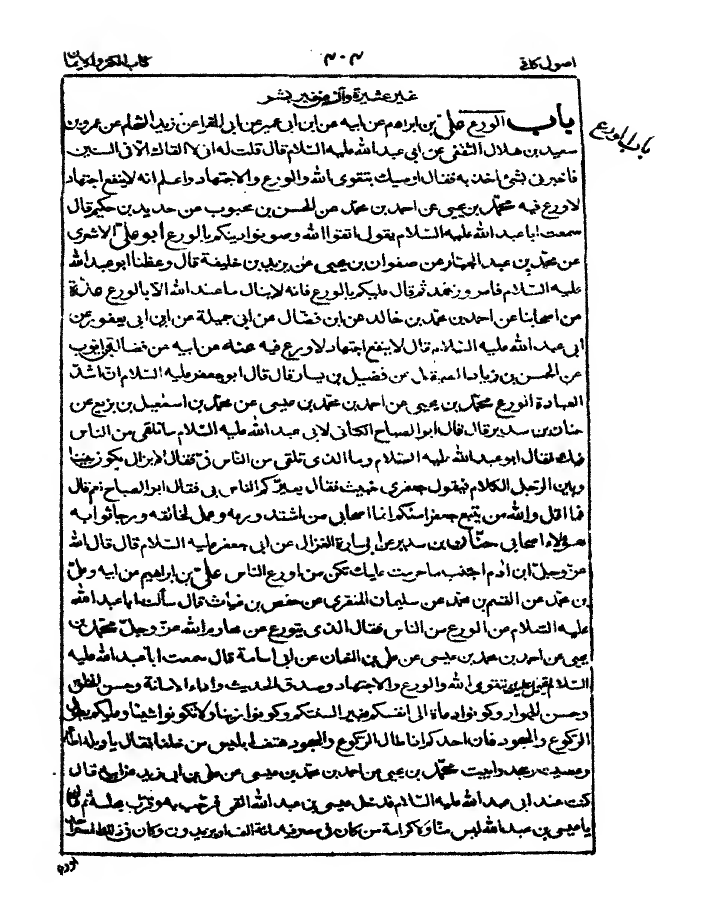 اصول كافى ٣٠٣ كتاب الكفر والايمان
غير عشيرة وآن من غير بشر
باب الورع علىّ بن ابراهيم عن ابيه عن ابن ابى عمير عن ابى المغرا عن زيد الشحام عن عمرو بن
باب الورع
سعيد بن هلال الثقفى عن ابى عبد الله عليه السلام قال قلت له انى لا القاك الا فى السنين
فاخبرنى بشئ اخذ به فقال اوصيك بتقوى الله والورع والاجتهاد واعلم انه لا ينفع اجتهاد
لا ورع فيه محمّد بن يحيى عن احمد بن محمّد عن الحسن بن محبوب عن حديد بن حكيم قال
سمعت ابا عبد الله عليه السلام يقول اتقوا الله وصونوا دينكم بالورع ابو علىّ الاشعرى
عن محمّد بن عبد الجبار عن صفوان بن يحيى عن يزيد بن خليفة قال وعظنا ابو عبد الله
عليه السلام فامر وزهد ثم قال عليكم بالورع فانه لا ينال ما عند الله الا بالورع عدّة
من اصحابنا عن احمد بن محمّد بن خالد عن ابن فضّال عن ابى جميلة عن ابن ابى يعفور عن
ابى عبد الله عليه السلام قال لا ينفع اجتهاد لا ورع فيه عنه عن ابيه عن فضالة بن ايوب
عن الحسن بن زياد الصيقل عن فضيل بن يسار قال قال ابو جعفر عليه السلام ان اشدّ
العبادة الورع محمّد بن يحيى عن احمد بن محمّد بن عيسى عن محمّد بن اسمعيل بن بزيع عن
حنان بن سدير قال قال ابو الصباح الكنانى لابى عبد الله عليه السلام ما نلقى من الناس
فيك فقال ابو عبد الله عليه السلام وما الذى تلقى من الناس فىّ فقال لا يزال يكون بيننا
وبين الرجل الكلام فيقول جعفرى خبيث فقال يعيّركم الناس بى فقال ابو الصباح نعم قال
فما اقل والله من يتبع جعفرا منكم انما اصحابى من اشتد ورعه وعمل لخالقه ورجا ثوابه
هؤلاء اصحابى حنّان بن سدير عن ابى سارة الغزال عن ابى جعفر عليه السلام قال قال الله
عزّ وجلّ ابن آدم اجتنب ما حرمت عليك تكن من اورع الناس علىّ بن ابراهيم عن ابيه وعلىّ
بن محمّد عن القسم بن محمّد عن سليمان المنقرى عن حفص بن غياث قال سألت ابا عبد الله
عليه السلام عن الورع من الناس فقال الذى يتورع عن محارم الله عزّ وجلّ محمّد بن
يحيى عن احمد بن محمد بن عيسى عن على بن النعمان عن ابى اسامة قال سمعت ابا عبد الله عليه
السلام يقول عليك بتقوى الله والورع والاجتهاد وصدق الحديث واداء الامانة وحسن الخلق
وحسن الجوار وكونوا دعاة الى انفسكم بغير السنتكم وكونوا زينا ولا تكونوا شينا وعليكم بطول
الركوع والسجود فان احدكم اذا اطال الركوع والسجود هتف ابليس من خلفه فقال يا ويله اطاع
وعصيت وسجد وابيت محمّد بن يحيى عن احمد بن محمّد بن عيسى عن على بن ابى زيد عن ابيه قال
كنت عند ابى عبد الله عليه السلام فدخل عيسى بن عبد الله القمى فرحب به وقرّب مجلسه ثم قال
يا عيسى بن عبد الله ليس منّا ولا كرامة من كان فى مصر فيه مائة الف او يزيدون وكان فى ذلك المصر احد
اورع